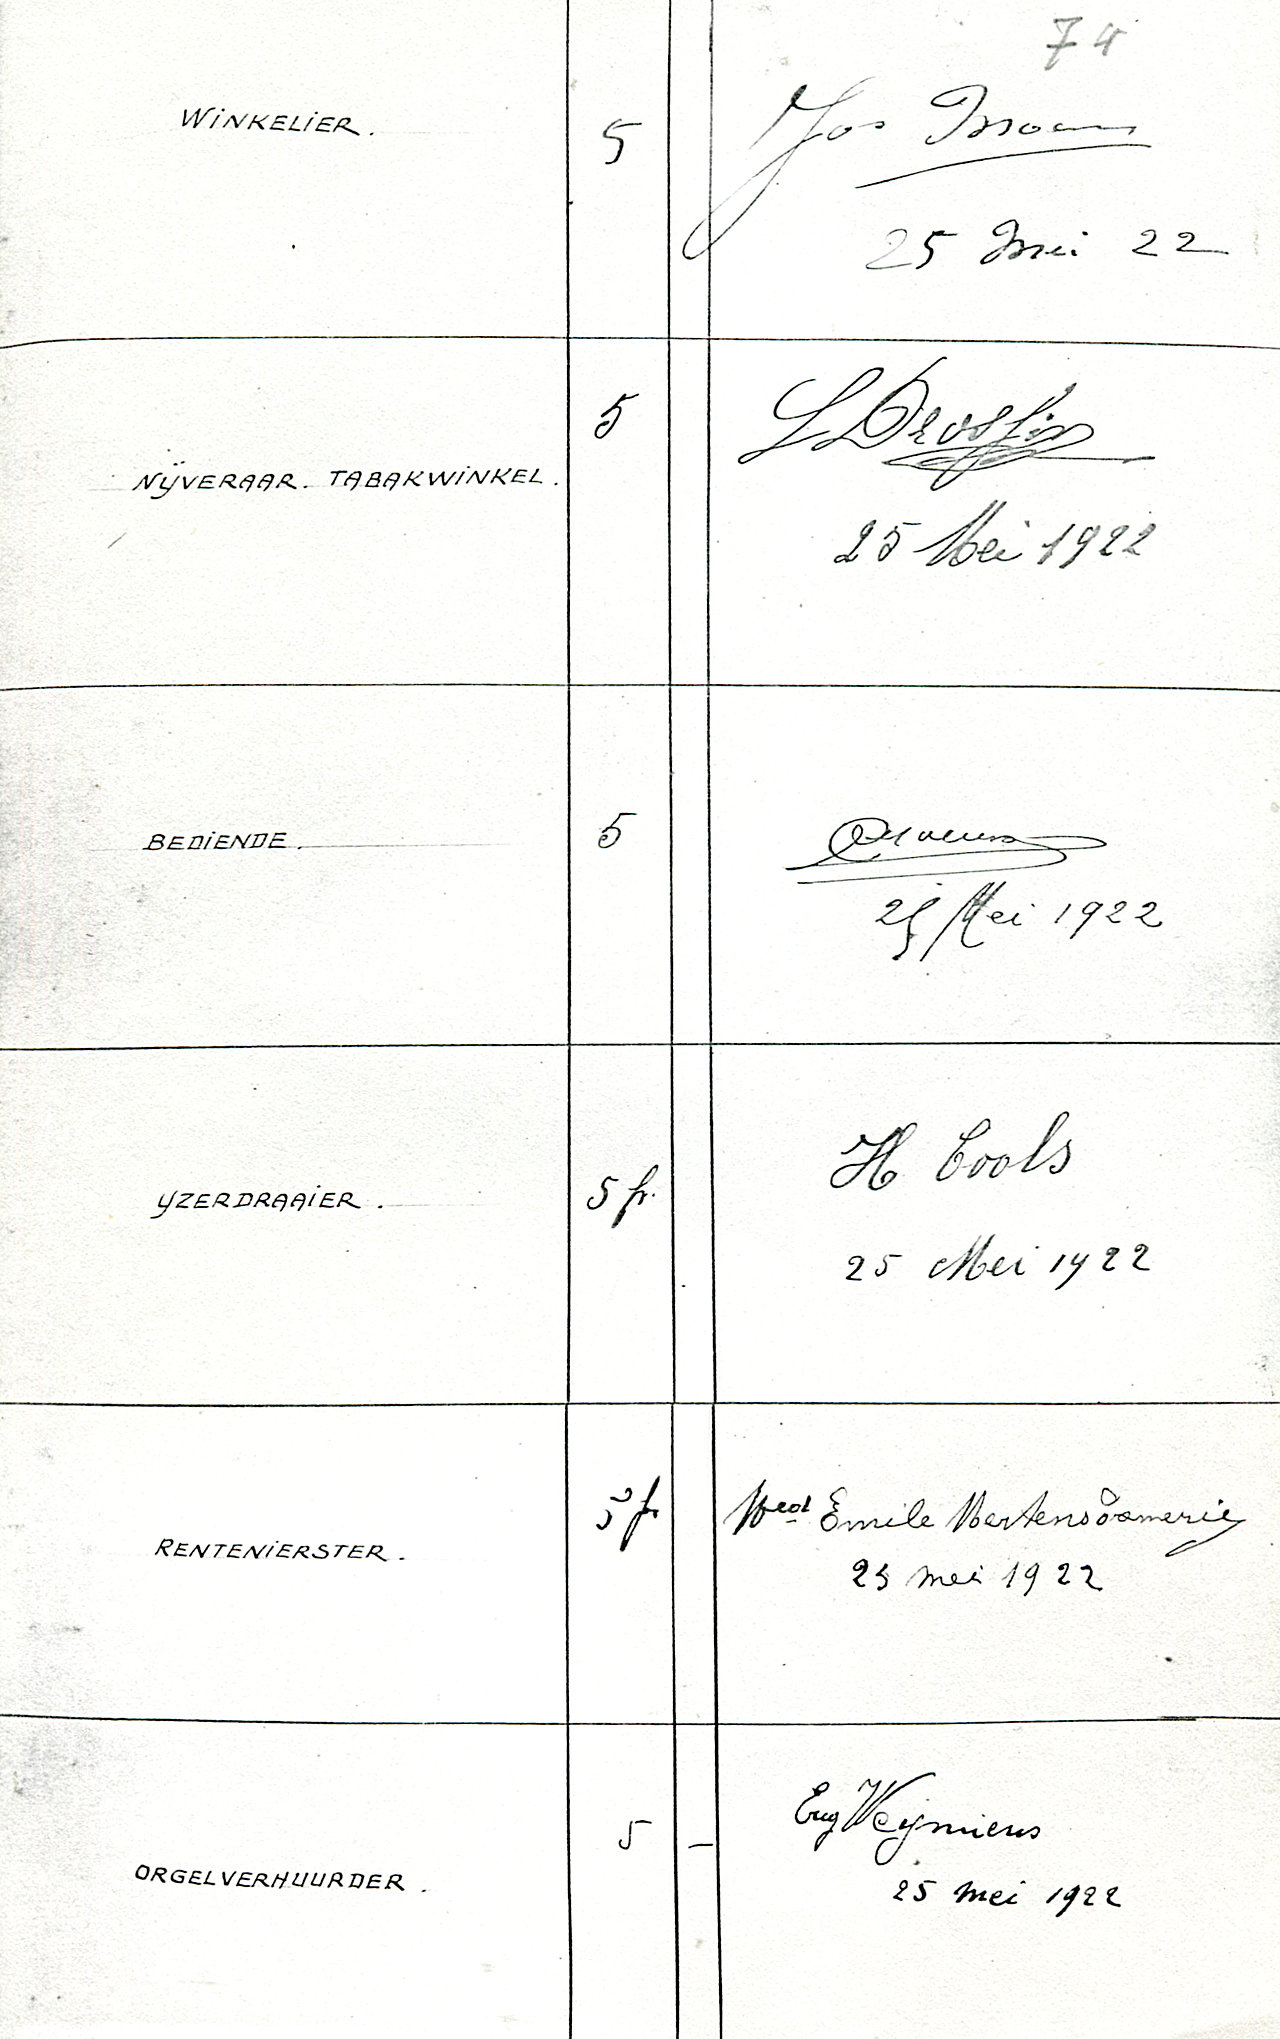 74
WINKELIER.
5
Jos
25 Mei 22
NIJVERAAR. TABAKWINKEL.
5
25 Mei 1922
BEDIENDE.
5
25 Mei 1922
IJZERDRAAIER.
5 fr.
H Cools
25 Mei 1922
RENTENIERSTER.
5 fr
Wed Emile
25 mei 1922
ORGELVERHUURDER.
5 –
Eug Weymiens
25 mei 1922